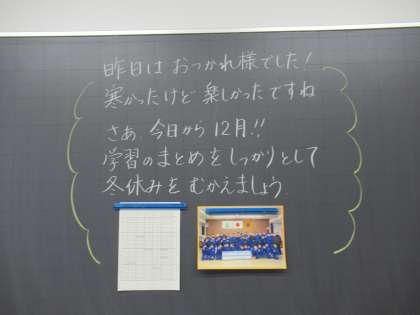 昨日は おつかれ様でした!
寒かったけど 楽しかったですね
さあ 今日から 12月!!
学習のまとめをしっかりとして
冬休みを むかえましょう